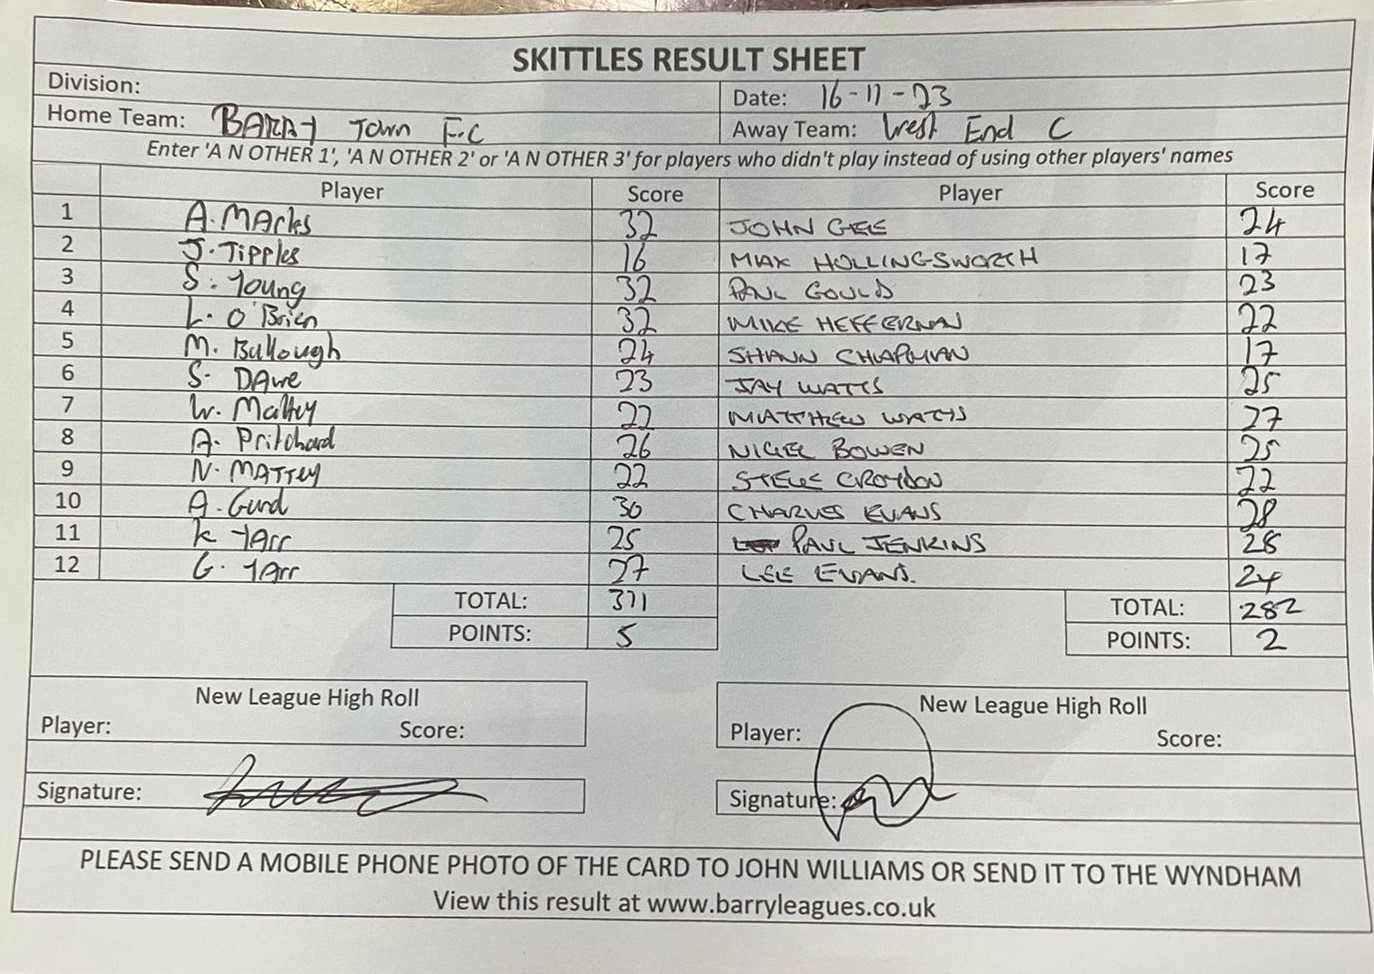 SKITTLES RESULT SHEET
Division:
Date: 16-11-23
Home Team: BARRY Town F.C
Away Team: West End C
Enter 'A N OTHER 1', 'A N OTHER 2' or 'A N OTHER 3' for players who didn't play instead of using other players' names
Player Score Player Score
1 A. MArks 32 JOHN GEE 24
2 J. Tipples 16 MAX HOLLINGSWORTH 17
3 S. Young 32 PAUL GOULD 23
4 L. O'Brien 32 MIKE HEFFERNAN 22
5 M. Bullough 24 SHAUN CHAPMAN 17
6 S. DAwe 23 JAY WATTS 25
7 W. Mattey 22 MATTHEW WATTS 27
8 A. Pritchard 26 NIGEL BOWEN 25
9 N. MATTEY 22 STEVE CROYDON 22
10 A. Gurd 30 CHARLES EVANS 28
11 K YArr 25 PAUL JENKINS 28
12 G. YArr 27 LEE EVANS. 24
TOTAL: 311 TOTAL: 282
POINTS: 5 POINTS: 2
New League High Roll
Player: Score:
Signature:
New League High Roll
Player: Score:
Signature:
PLEASE SEND A MOBILE PHONE PHOTO OF THE CARD TO JOHN WILLIAMS OR SEND IT TO THE WYNDHAM
View this result at www.barryleagues.co.uk